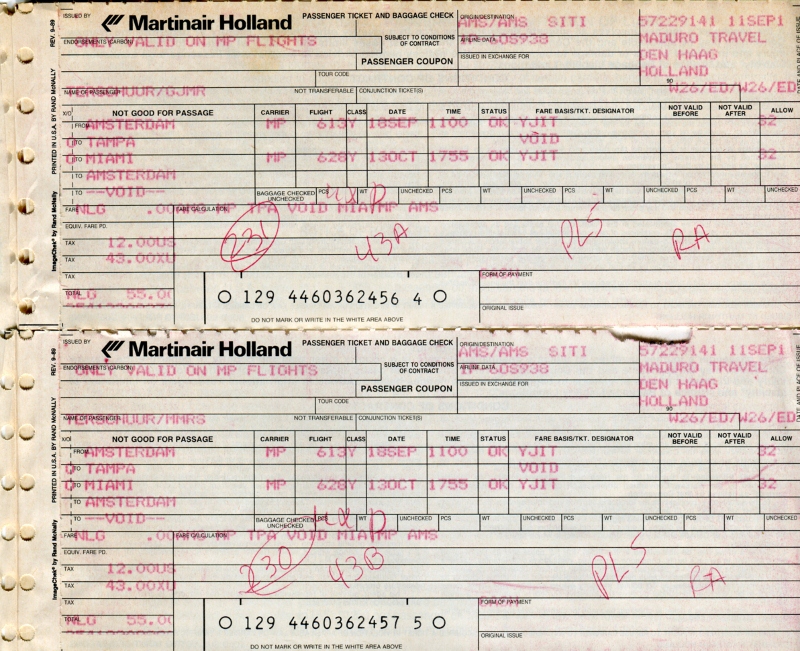 ISSUED BY
Martinair Holland
PASSENGER TICKET AND BAGGAGE CHECK
ORIGIN/DESTINATION
AMS/AMS SITI
57229141 11SEP1
REV. 9-89
ENDORSEMENTS (CARBON)
ONLY VALID ON MP FLIGHTS
SUBJECT TO CONDITIONS
OF CONTRACT
AIRLINE DATA
MADURO TRAVEL
PASSENGER COUPON
ISSUED IN EXCHANGE FOR
DEN HAAG
TOUR CODE
HOLLAND
NAME OF PASSENGER
NOT TRANSFERABLE
CONJUNCTION TICKET(S)
W26/ED/W26/ED
PRINTED IN U.S.A. BY RAND McNALLY
X/O NOT GOOD FOR PASSAGE CARRIER FLIGHT CLASS DATE TIME STATUS FARE BASIS/TKT. DESIGNATOR NOT VALID BEFORE NOT VALID AFTER ALLOW
FROM AMSTERDAM MP 613Y 18SEP 1100 OK YJIT 32
O TO TAMPA VOID
O TO MIAMI MP 628Y 13OCT 1755 OK YJIT 32
TO AMSTERDAM
TO --VOID--
BAGGAGE CHECKED PCS WT UNCHECKED PCS WT UNCHECKED PCS WT UNCHECKED PCS WT UNCHECKED
UNCHECKED
ImageChek® by Rand McNally
FARE NLG
FARE CALCULATION
MP TPA VOID MIA MP AMS
EQUIV. FARE PD.
231
43A
PLS
RA
TAX 12.00US
TAX 43.00XU
TAX
FORM OF PAYMENT
TOTAL NLG 55.00
O 129 4460362456 4 O
ORIGINAL ISSUE
DO NOT MARK OR WRITE IN THE WHITE AREA ABOVE
ISSUED BY
Martinair Holland
PASSENGER TICKET AND BAGGAGE CHECK
ORIGIN/DESTINATION
AMS/AMS SITI
57229141 11SEP1
REV. 9-89
ENDORSEMENTS (CARBON)
ONLY VALID ON MP FLIGHTS
SUBJECT TO CONDITIONS
OF CONTRACT
AIRLINE DATA
MADURO TRAVEL
PASSENGER COUPON
ISSUED IN EXCHANGE FOR
DEN HAAG
TOUR CODE
HOLLAND
NAME OF PASSENGER
NOT TRANSFERABLE
CONJUNCTION TICKET(S)
W26/ED/W26/ED
PRINTED IN U.S.A. BY RAND McNALLY
X/O NOT GOOD FOR PASSAGE CARRIER FLIGHT CLASS DATE TIME STATUS FARE BASIS/TKT. DESIGNATOR NOT VALID BEFORE NOT VALID AFTER ALLOW
FROM AMSTERDAM MP 613Y 18SEP 1100 OK YJIT 32
O TO TAMPA VOID
O TO MIAMI MP 628Y 13OCT 1755 OK YJIT 32
TO AMSTERDAM
TO --VOID--
BAGGAGE CHECKED PCS WT UNCHECKED PCS WT UNCHECKED PCS WT UNCHECKED PCS WT UNCHECKED
UNCHECKED
ImageChek® by Rand McNally
FARE NLG
FARE CALCULATION
MP TPA VOID MIA MP AMS
EQUIV. FARE PD.
230
43B
PLS
RA
TAX 12.00US
TAX 43.00XU
TAX
FORM OF PAYMENT
TOTAL NLG 55.00
O 129 4460362457 5 O
ORIGINAL ISSUE
DO NOT MARK OR WRITE IN THE WHITE AREA ABOVE